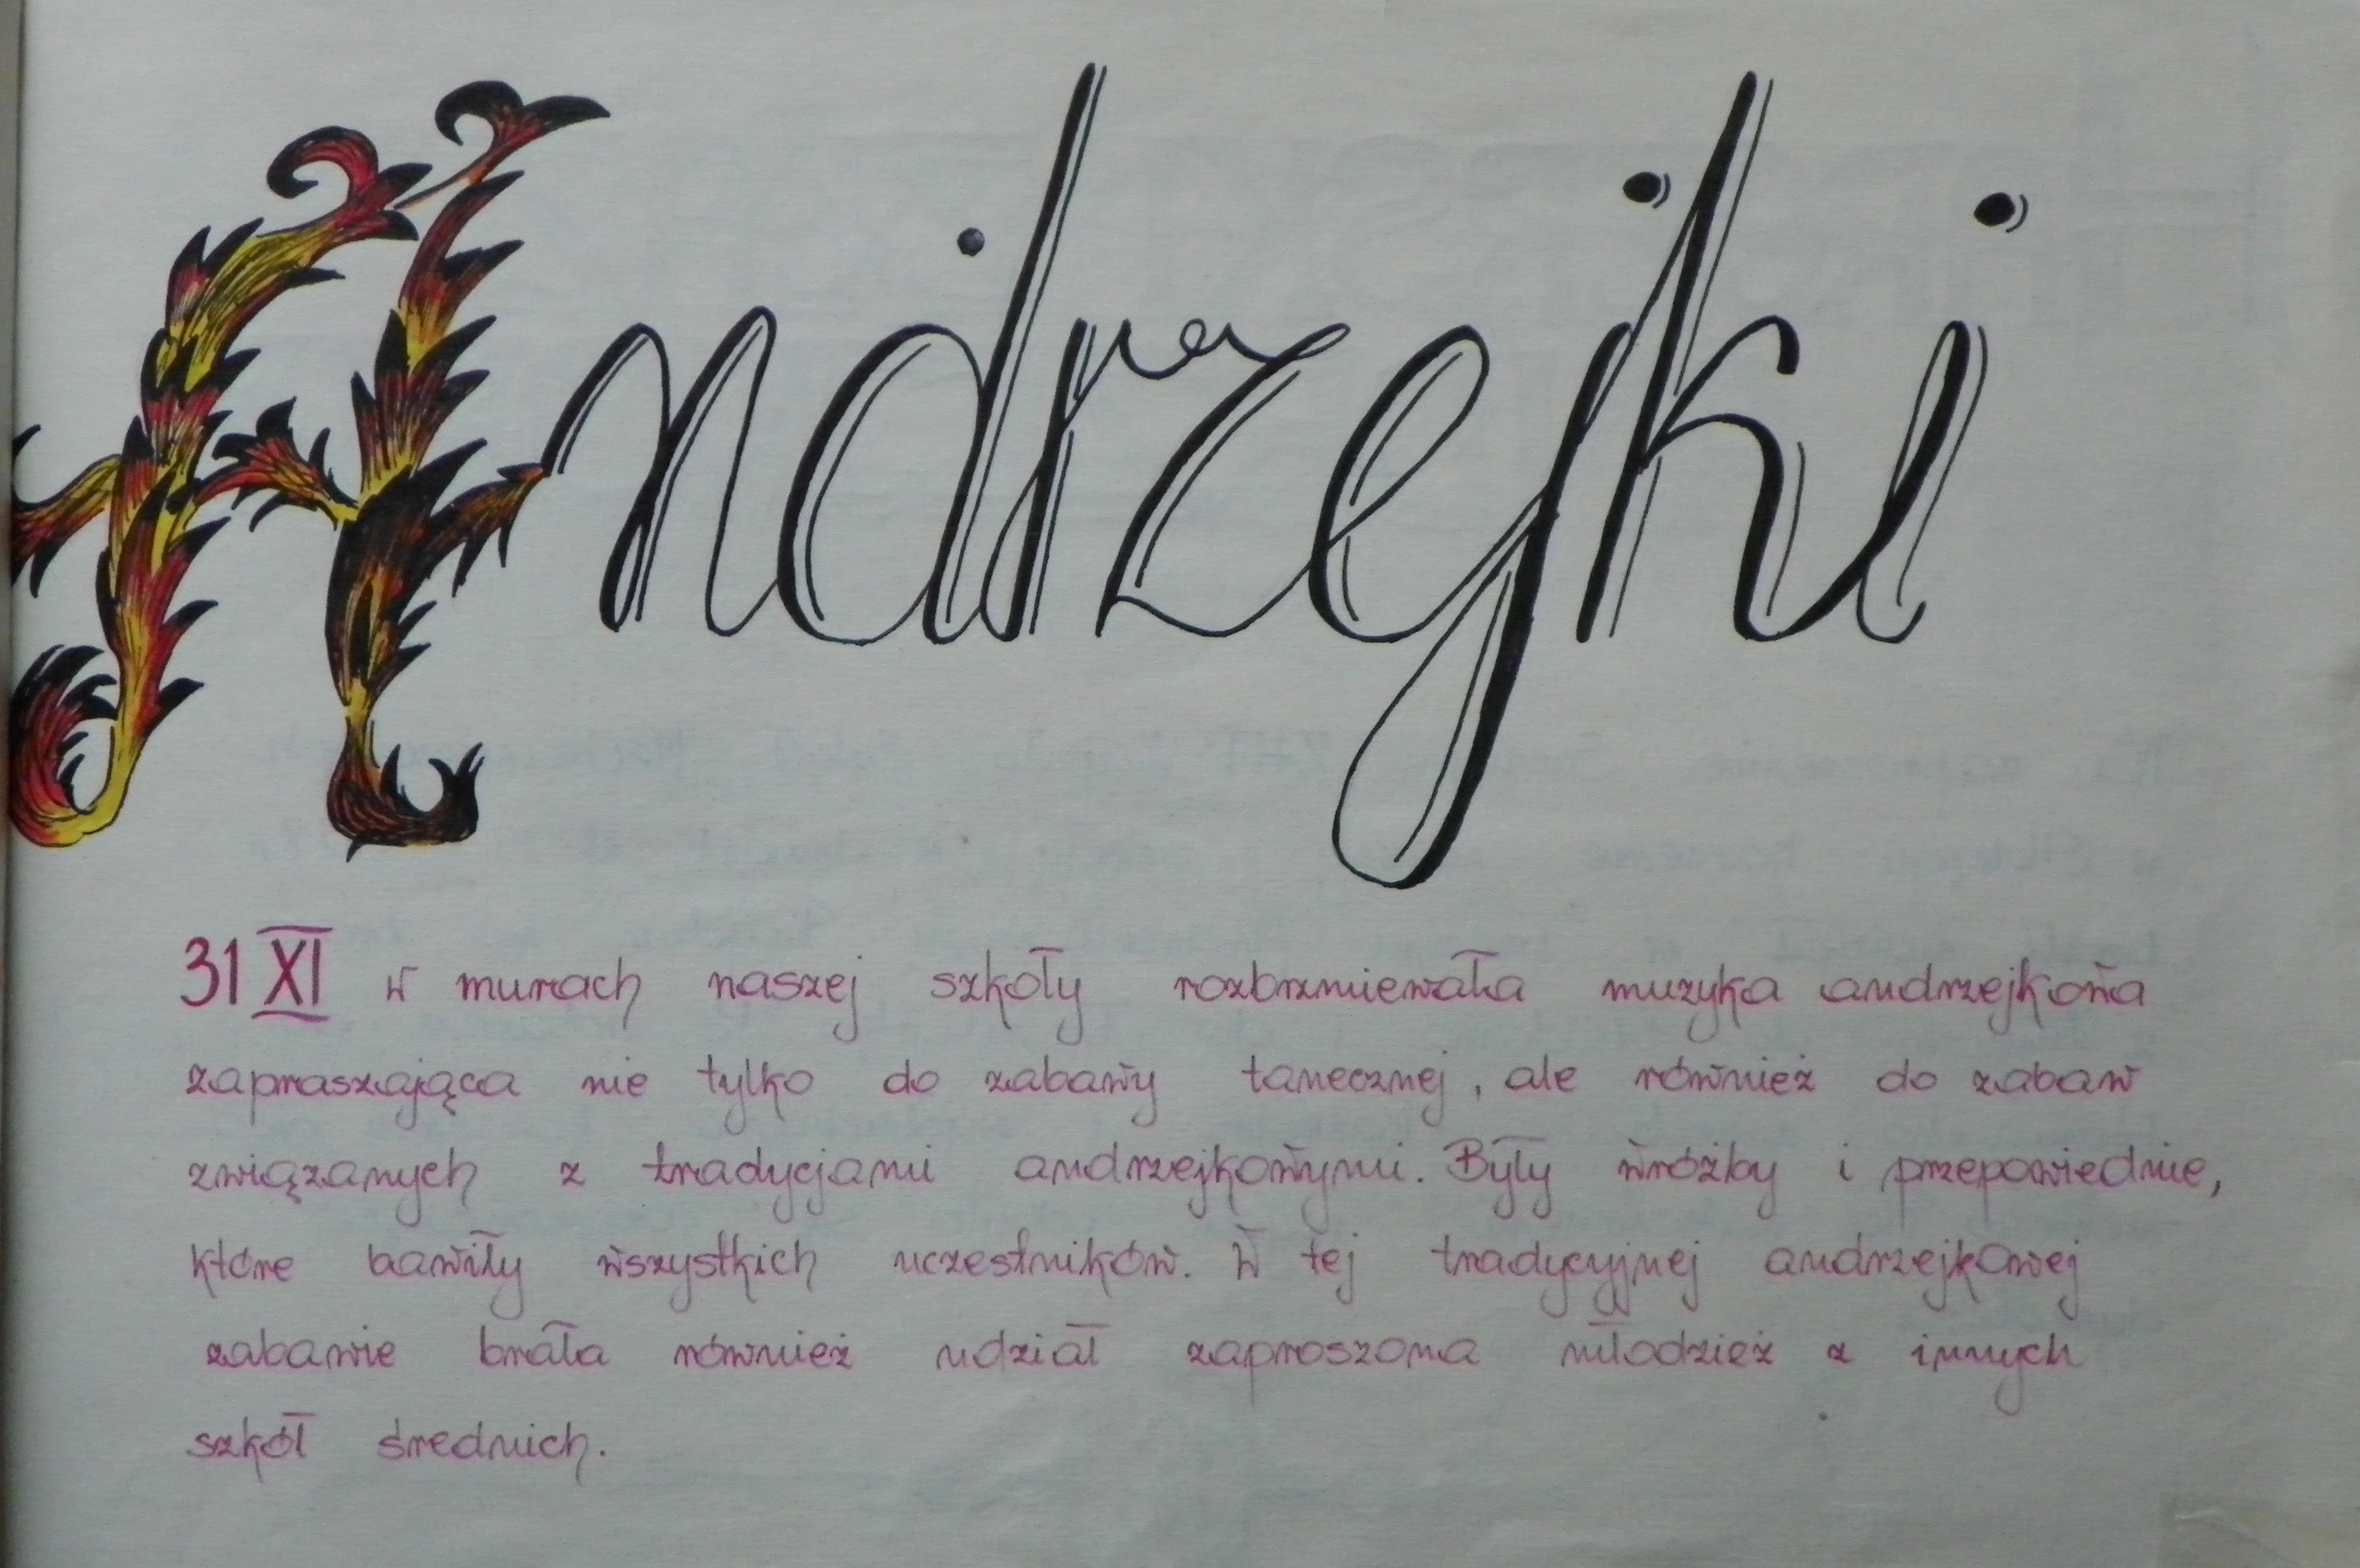 Andrzejki
31 XI w murach naszej szkoły rozbrzmiewała muzyka andrzejkowa
zapraszająca nie tylko do zabawy tanecznej, ale również do zabaw
związanych z tradycjami andrzejkowymi. Były wróżby i przepowiednie,
które bawiły wszystkich uczestników. W tej tradycyjnej andrzejkowej
zabawie brała również udział zaproszona młodzież z innych
szkół średnich.